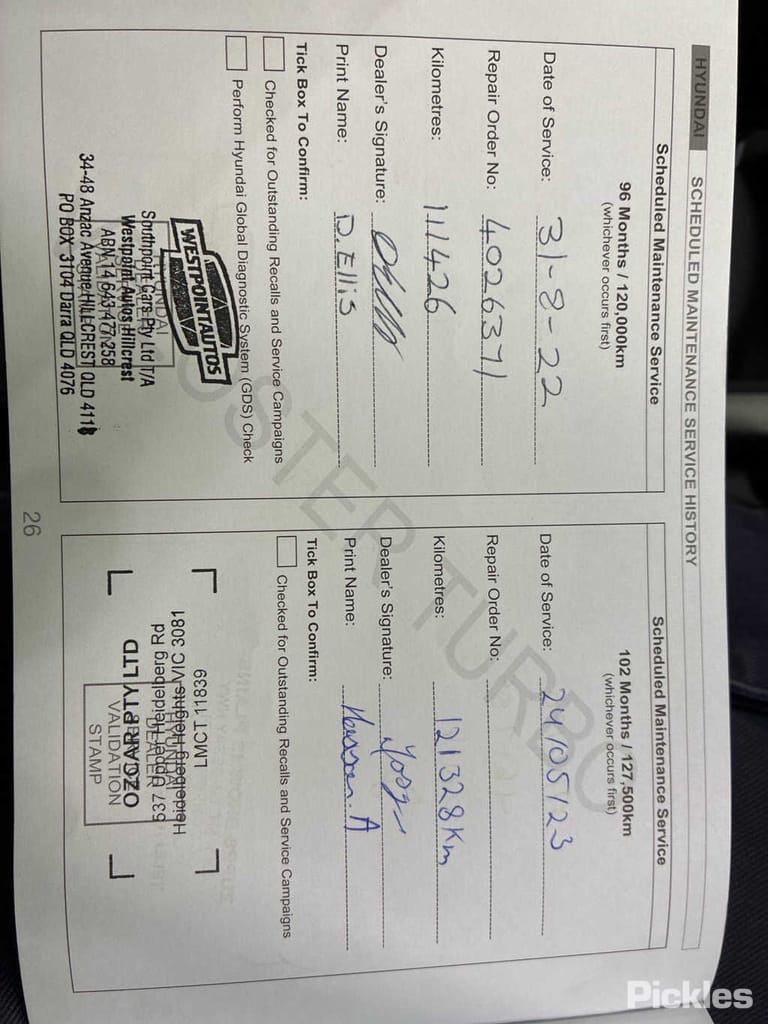 HYUNDAI SCHEDULED MAINTENANCE SERVICE HISTORY
Scheduled Maintenance Service
96 Months / 120,000km
(whichever occurs first)
Date of Service: 31-8-22
Repair Order No: 4026371
Kilometres: 111426
Dealer's Signature:
Print Name: D. Ellis
Tick Box To Confirm:
Checked for Outstanding Recalls and Service Campaigns
Perform Hyundai Global Diagnostic System (GDS) Check
WESTPOINT AUTOS
Southpoint Cars Pty Ltd T/A
Westpoint Autos Hillcrest
ABN 14 643 477 258
34-48 Anzac Avenue HILLCREST QLD 4118
PO BOX 3104 Darra QLD 4076
Scheduled Maintenance Service
102 Months / 127,500km
(whichever occurs first)
Date of Service: 24/05/23
Repair Order No:
Kilometres: 121328Km
Dealer's Signature:
Print Name:
Tick Box To Confirm:
Checked for Outstanding Recalls and Service Campaigns
LMCT 11839
Heidelberg Heights VIC 3081
637 Upper Heidelberg Rd
OZCAR PTY LTD
HYUNDAI
DEALER
VALIDATION
STAMP
26
TURBO
Pickles